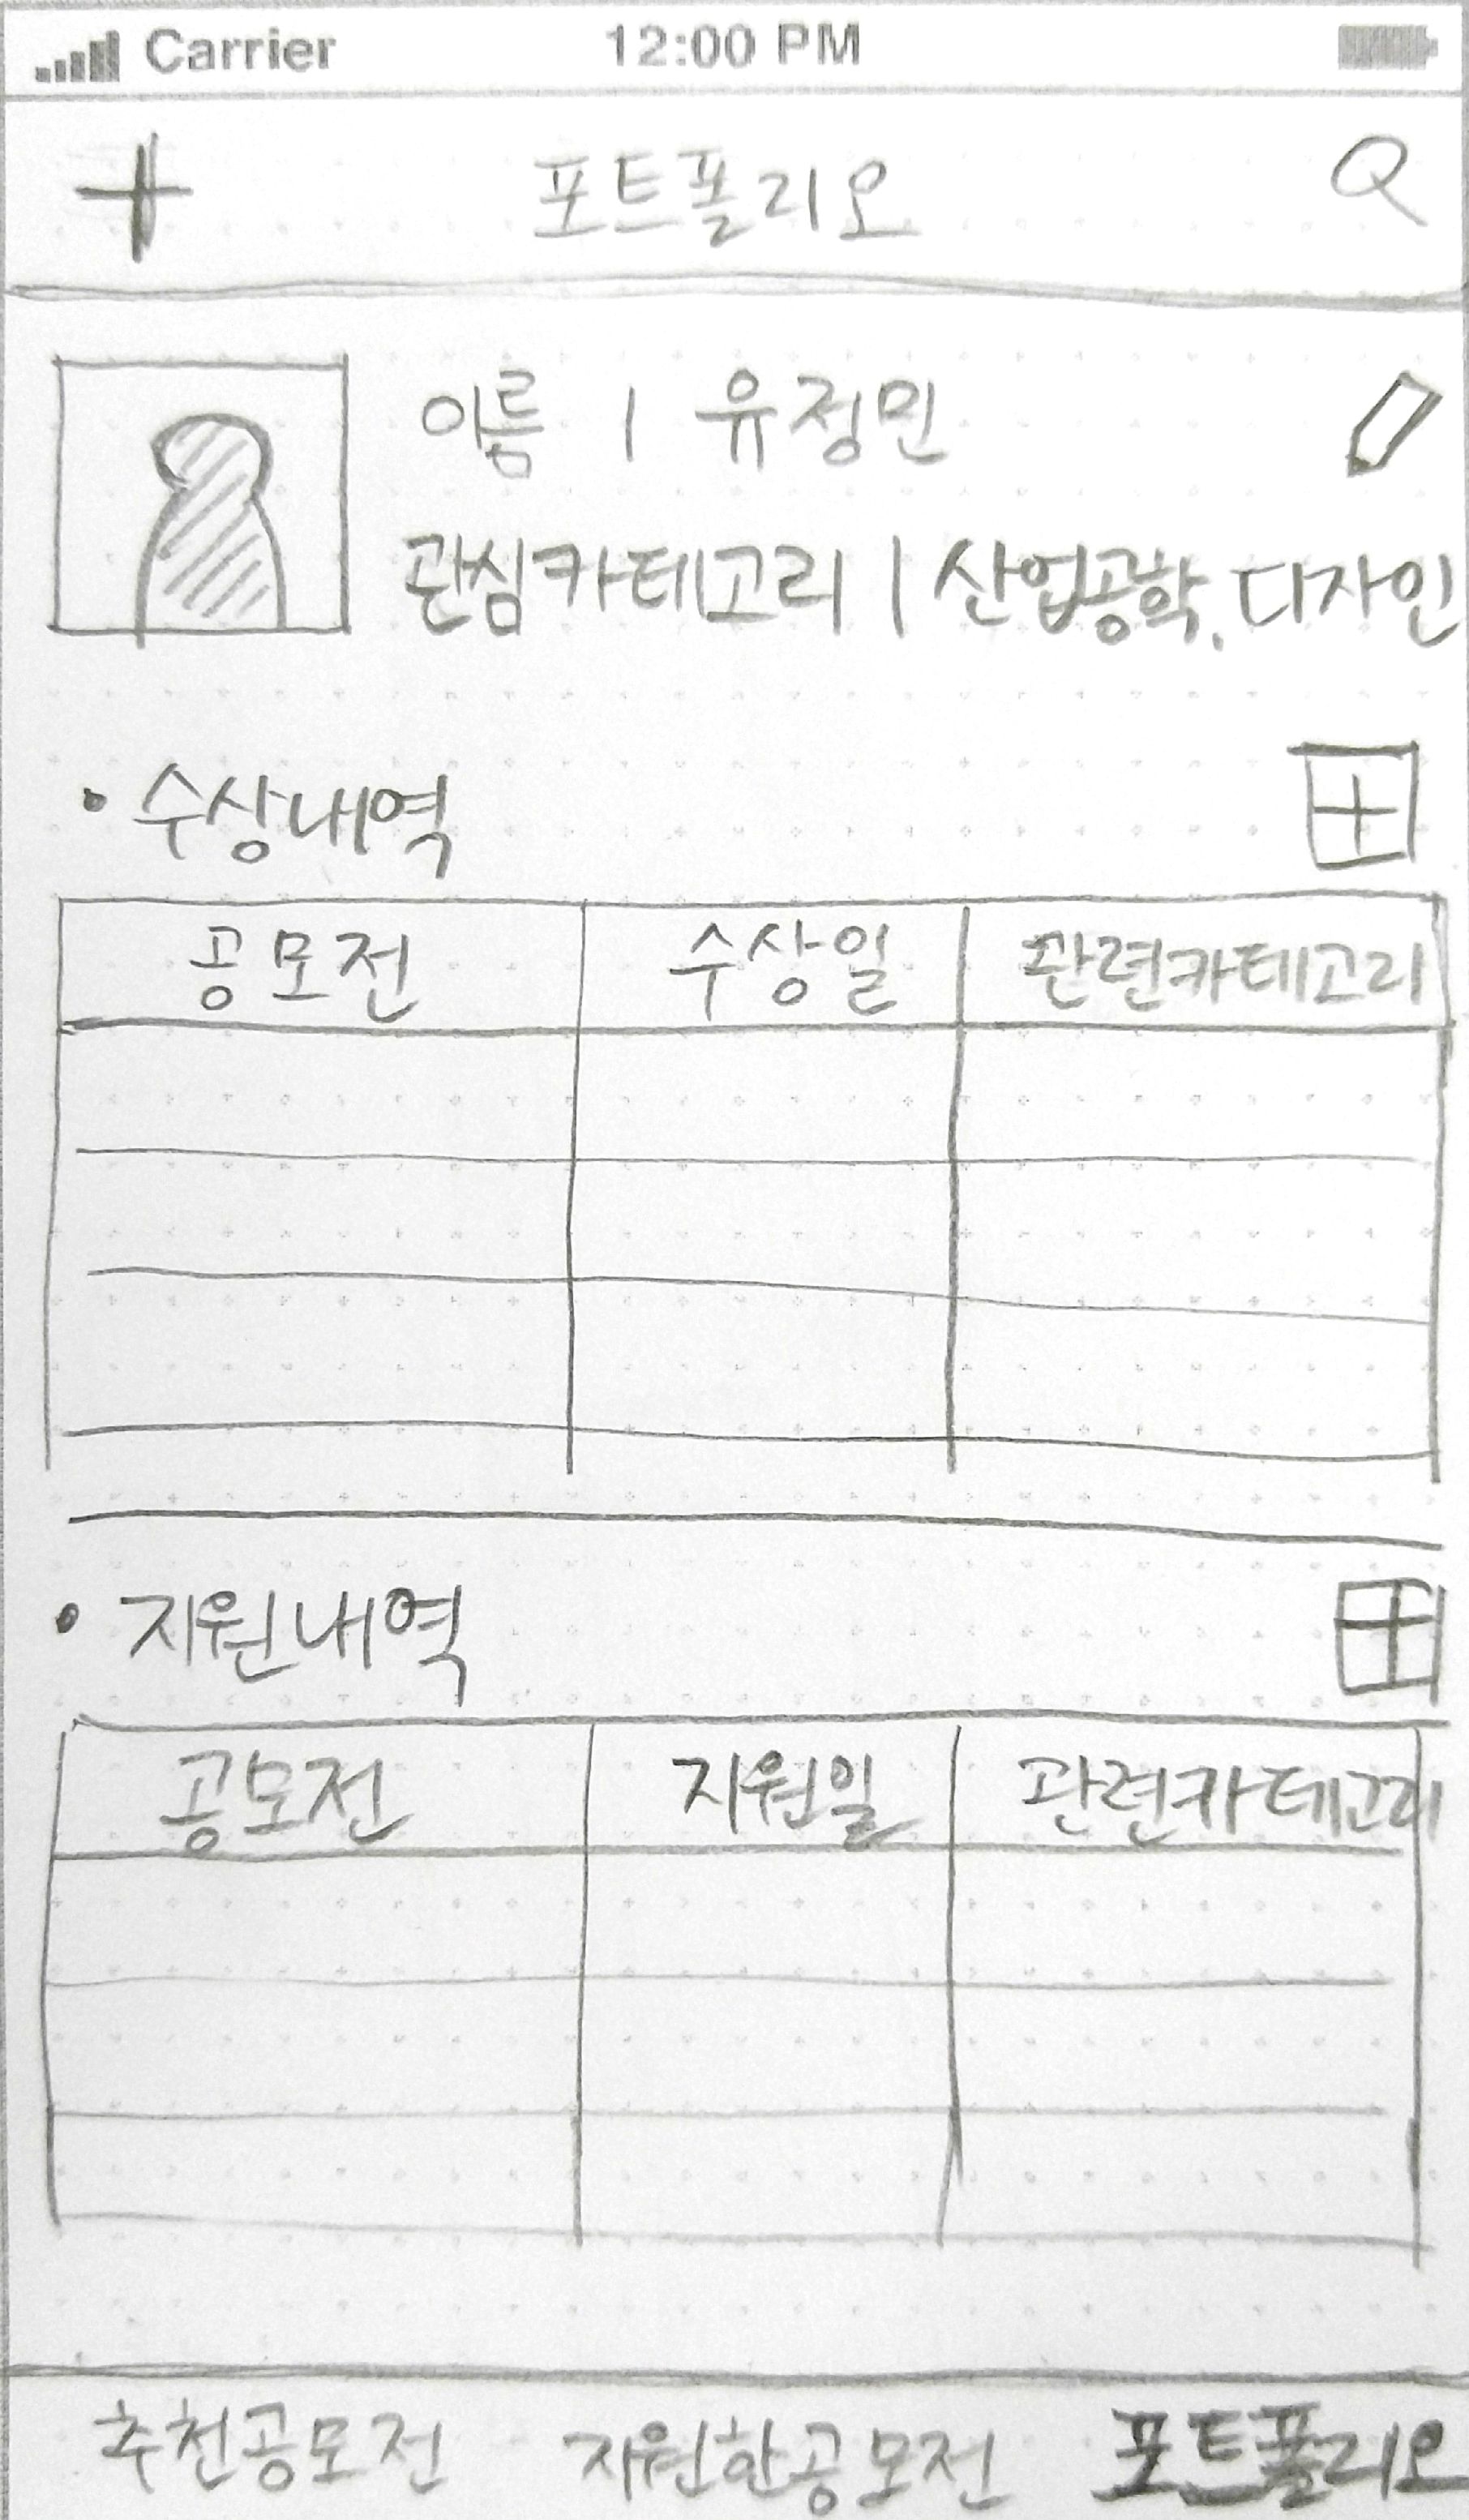 Carrier 12:00 PM
포트폴리오
이름 | 유정민
관심카테고리 | 산업공학, 디자인
• 수상내역
공모전 수상일 관련카테고리
• 지원내역
공모전 지원일 관련카테고리
추천공모전 지원한공모전 포트폴리오